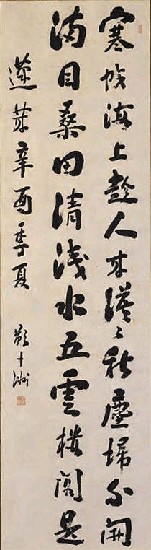 海上人來秋塵掃不開
滿目桑田清淺水五雲樓閣是
蓬萊辛酉季夏 鄭十洲